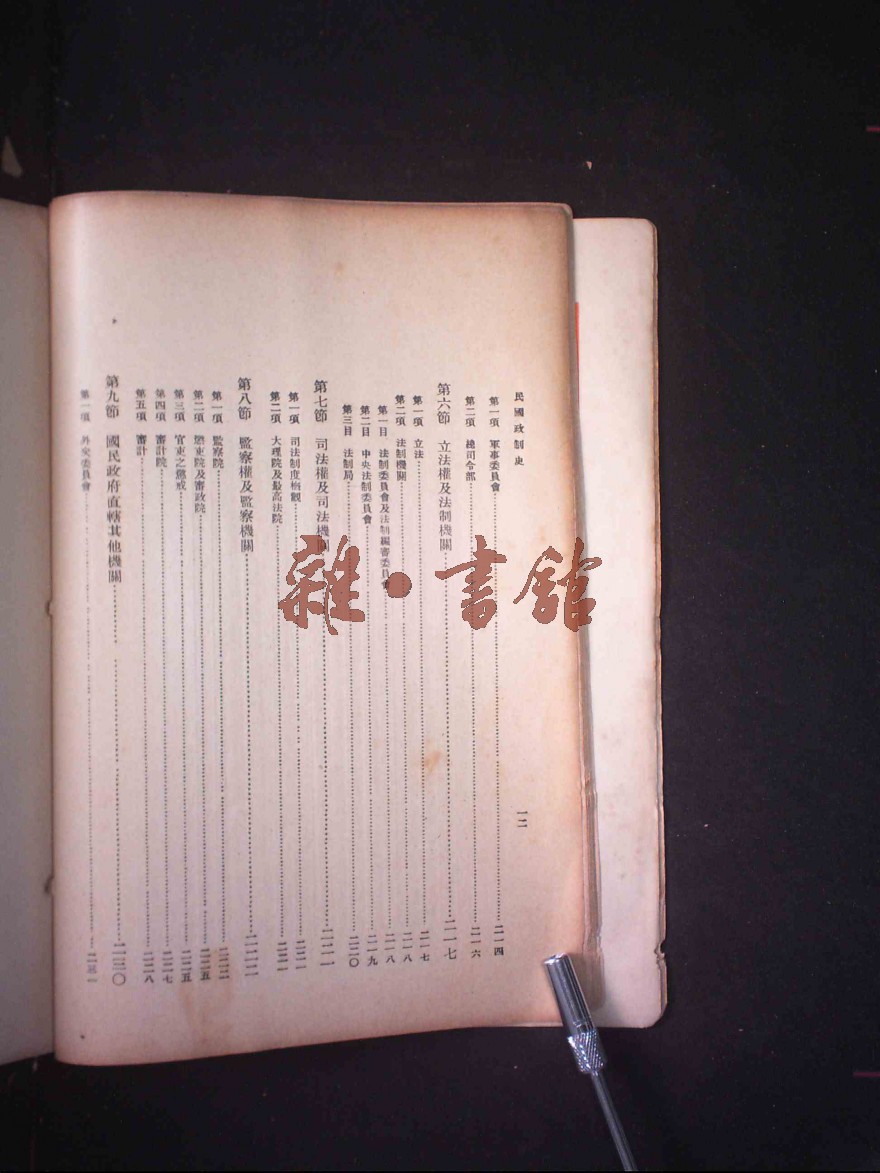 民國政制史
一二
第一項 軍事委員會 二一四
第二項 總司令部 二一六
第六節 立法權及法制機關 二一七
第一項 立法 二一七
第二項 法制機關 二一八
第一目 法制委員會及法制編審委員會 二一八
第二目 中央法制委員會 二一九
第三目 法制局 二二〇
第七節 司法權及司法機關 二二一
第一項 司法制度概觀 二二一
第二項 大理院及最高法院 二二一
第八節 監察權及監察機關 二二二
第一項 監察院 二二二
第二項 懲吏院及審政院 二二五
第三項 官吏之懲戒 二二五
第四項 審計院 二二七
第五項 審計 二二八
第九節 國民政府直轄其他機關 二三〇
第一項 外交委員會 二三一
雜·書館